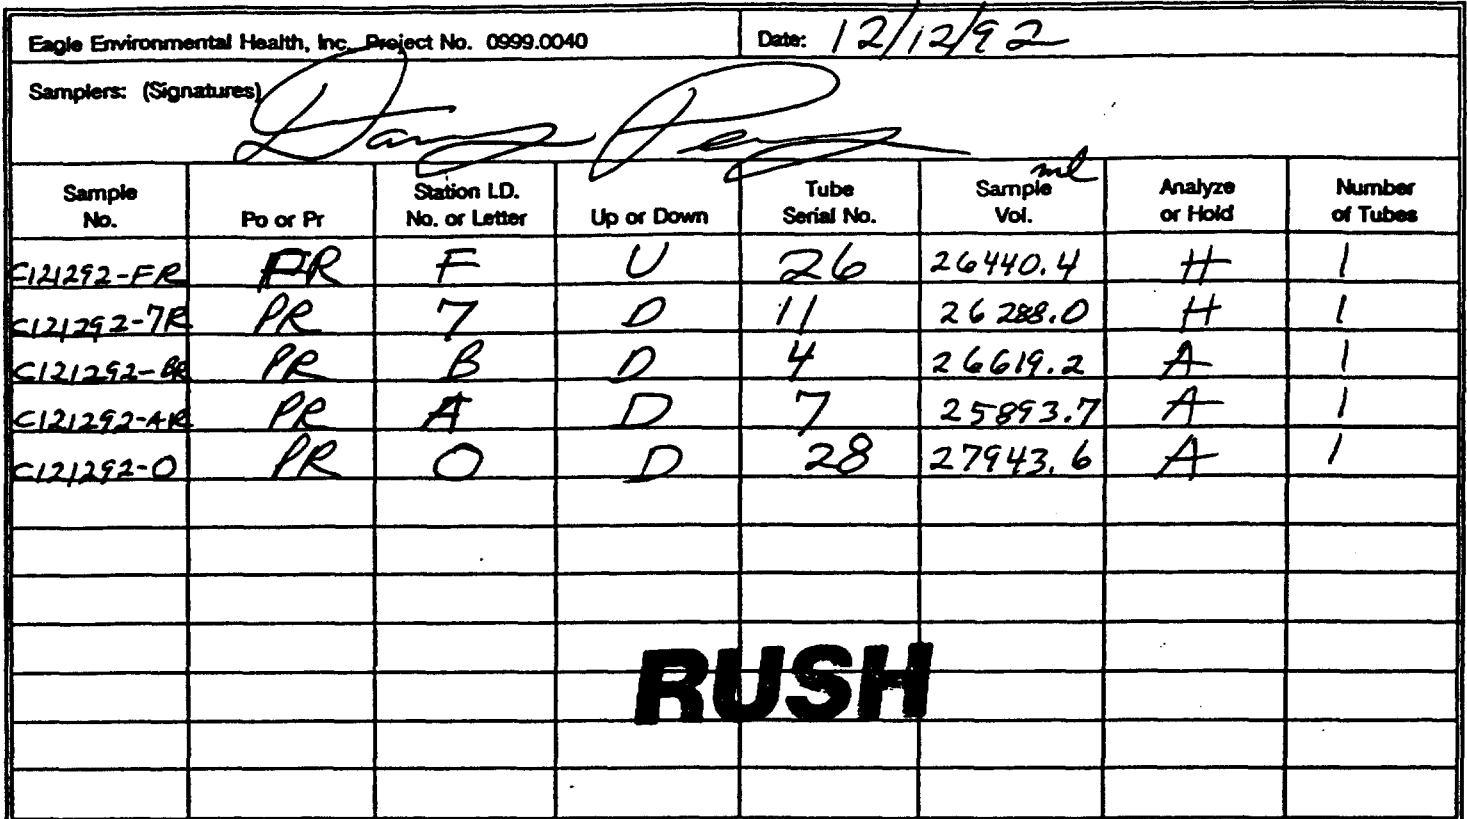 Eagle Environmental Health, Inc. Project No. 0999.0040 Date: 12/12/92
Samplers: (Signatures)
Sample No. Po or Pr Station I.D. No. or Letter Up or Down Tube Serial No. Sample Vol. ml Analyze or Hold Number of Tubes
C121292-FR PR F U 26 26440.4 H 1
C121292-7R PR 7 D 11 26288.0 H 1
C121292-BR PR B D 4 26619.2 A 1
C121292-AR PR A D 7 25893.7 A 1
C121292-O PR O D 28 27943.6 A 1
RUSH